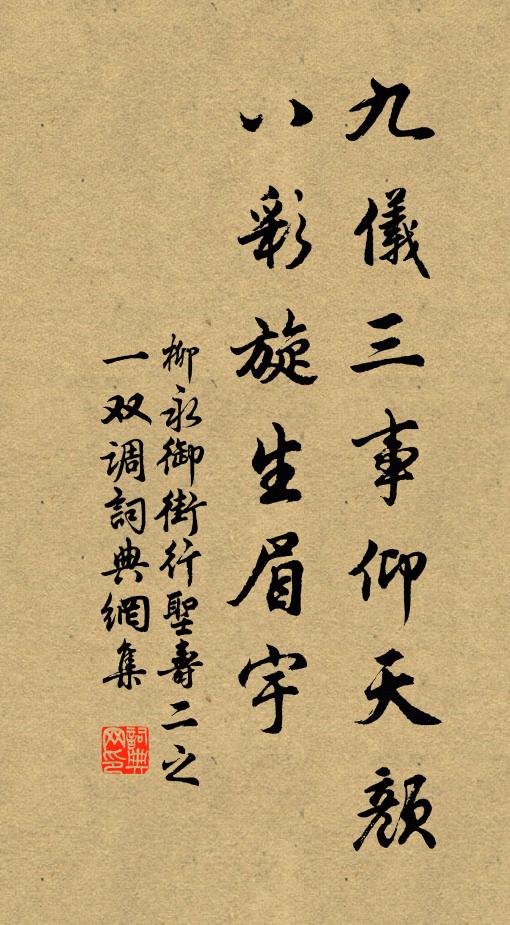 九儀三事仰天顏
八彩旋生眉宇
柳永御街行聖壽二之
一双调詞典網集
詞典网印